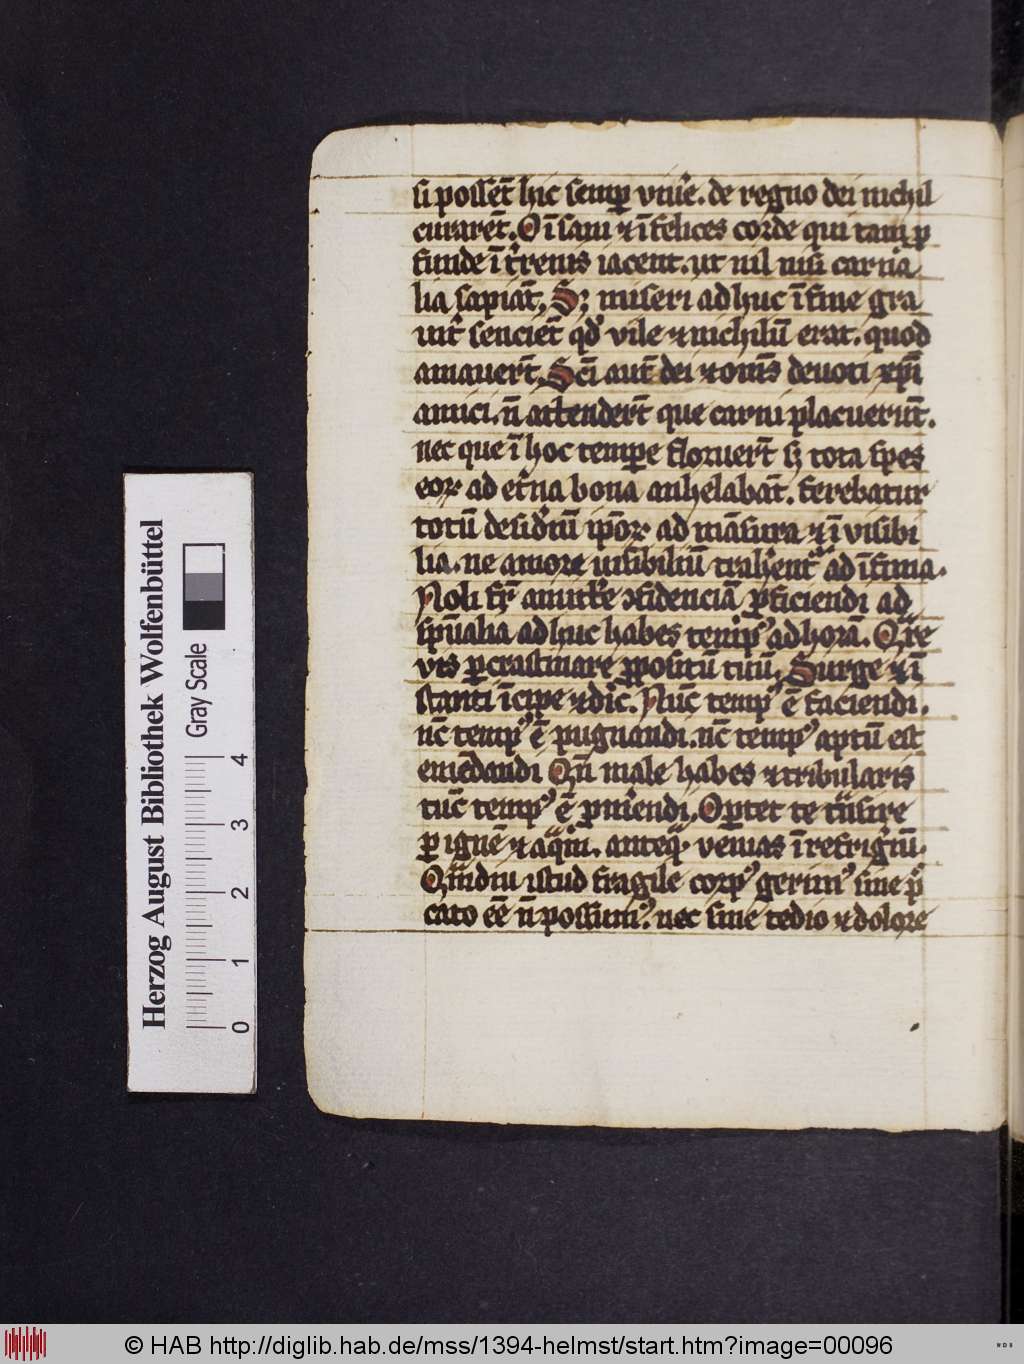 si possēt hic semp̱ viuͥe. de regno dei nichil
curarēt. O ī sani ⁊ īfelices corde qui tam ꝓ
funde ī tͥrenis iacent. ut nil nisi carna
lia sapiāt, Sꝫ miseri adhuc ī fine gra
uitͥ senciēt qd' vile ⁊ nichilū erat. quod
amauerūt. Scī aut̄ dei ⁊ om̄s deuoti xp̄i
amici. n̄ attendert̄ que carni placuerūt.
nec que ī hoc temꝑe floruert̄ sꝫ tota spes
eoꝝ ad et'na bona anhelabāt. ferebatur
totū desid'iū ip̄oꝝ ad māsura ⁊ īvisibi
lia. ne amore uisibiliū trah'ent᷑ ad īfima.
Noli fr̄ amitt'e ꝯfidenciā ꝓficiendi ad
sp̄ualia adhuc habes temp⁹ ad horā. Qͣre
vis ꝓcrastinare ꝓpositū tuū, Surge ⁊ ī
stanti īcipe ⁊ dic. Nūc temp⁹ ē faciendi.
nc̄ temp⁹ ē pugnandi. nc̄ temp⁹ aptū est
emēdandi Qn̄ male habes ⁊ tribularis
tūc temp⁹ ē ꝓm'endi. Oꝑtet te tͣnsire
ꝑ ignē ⁊ aqͣm. anteqͣ. venias ī refrig'iū.
Qͣmdiu istud fragile corp⁹ gerim⁹ sine p̄
cato eē n̄ possum⁹. nec sine tedio ⁊ dolore
Herzog August Bibliothek Wolfenbüttel
Gray Scale
0 1 2 3 4
© HAB http://diglib.hab.de/mss/1394-helmst/start.htm?image=00096